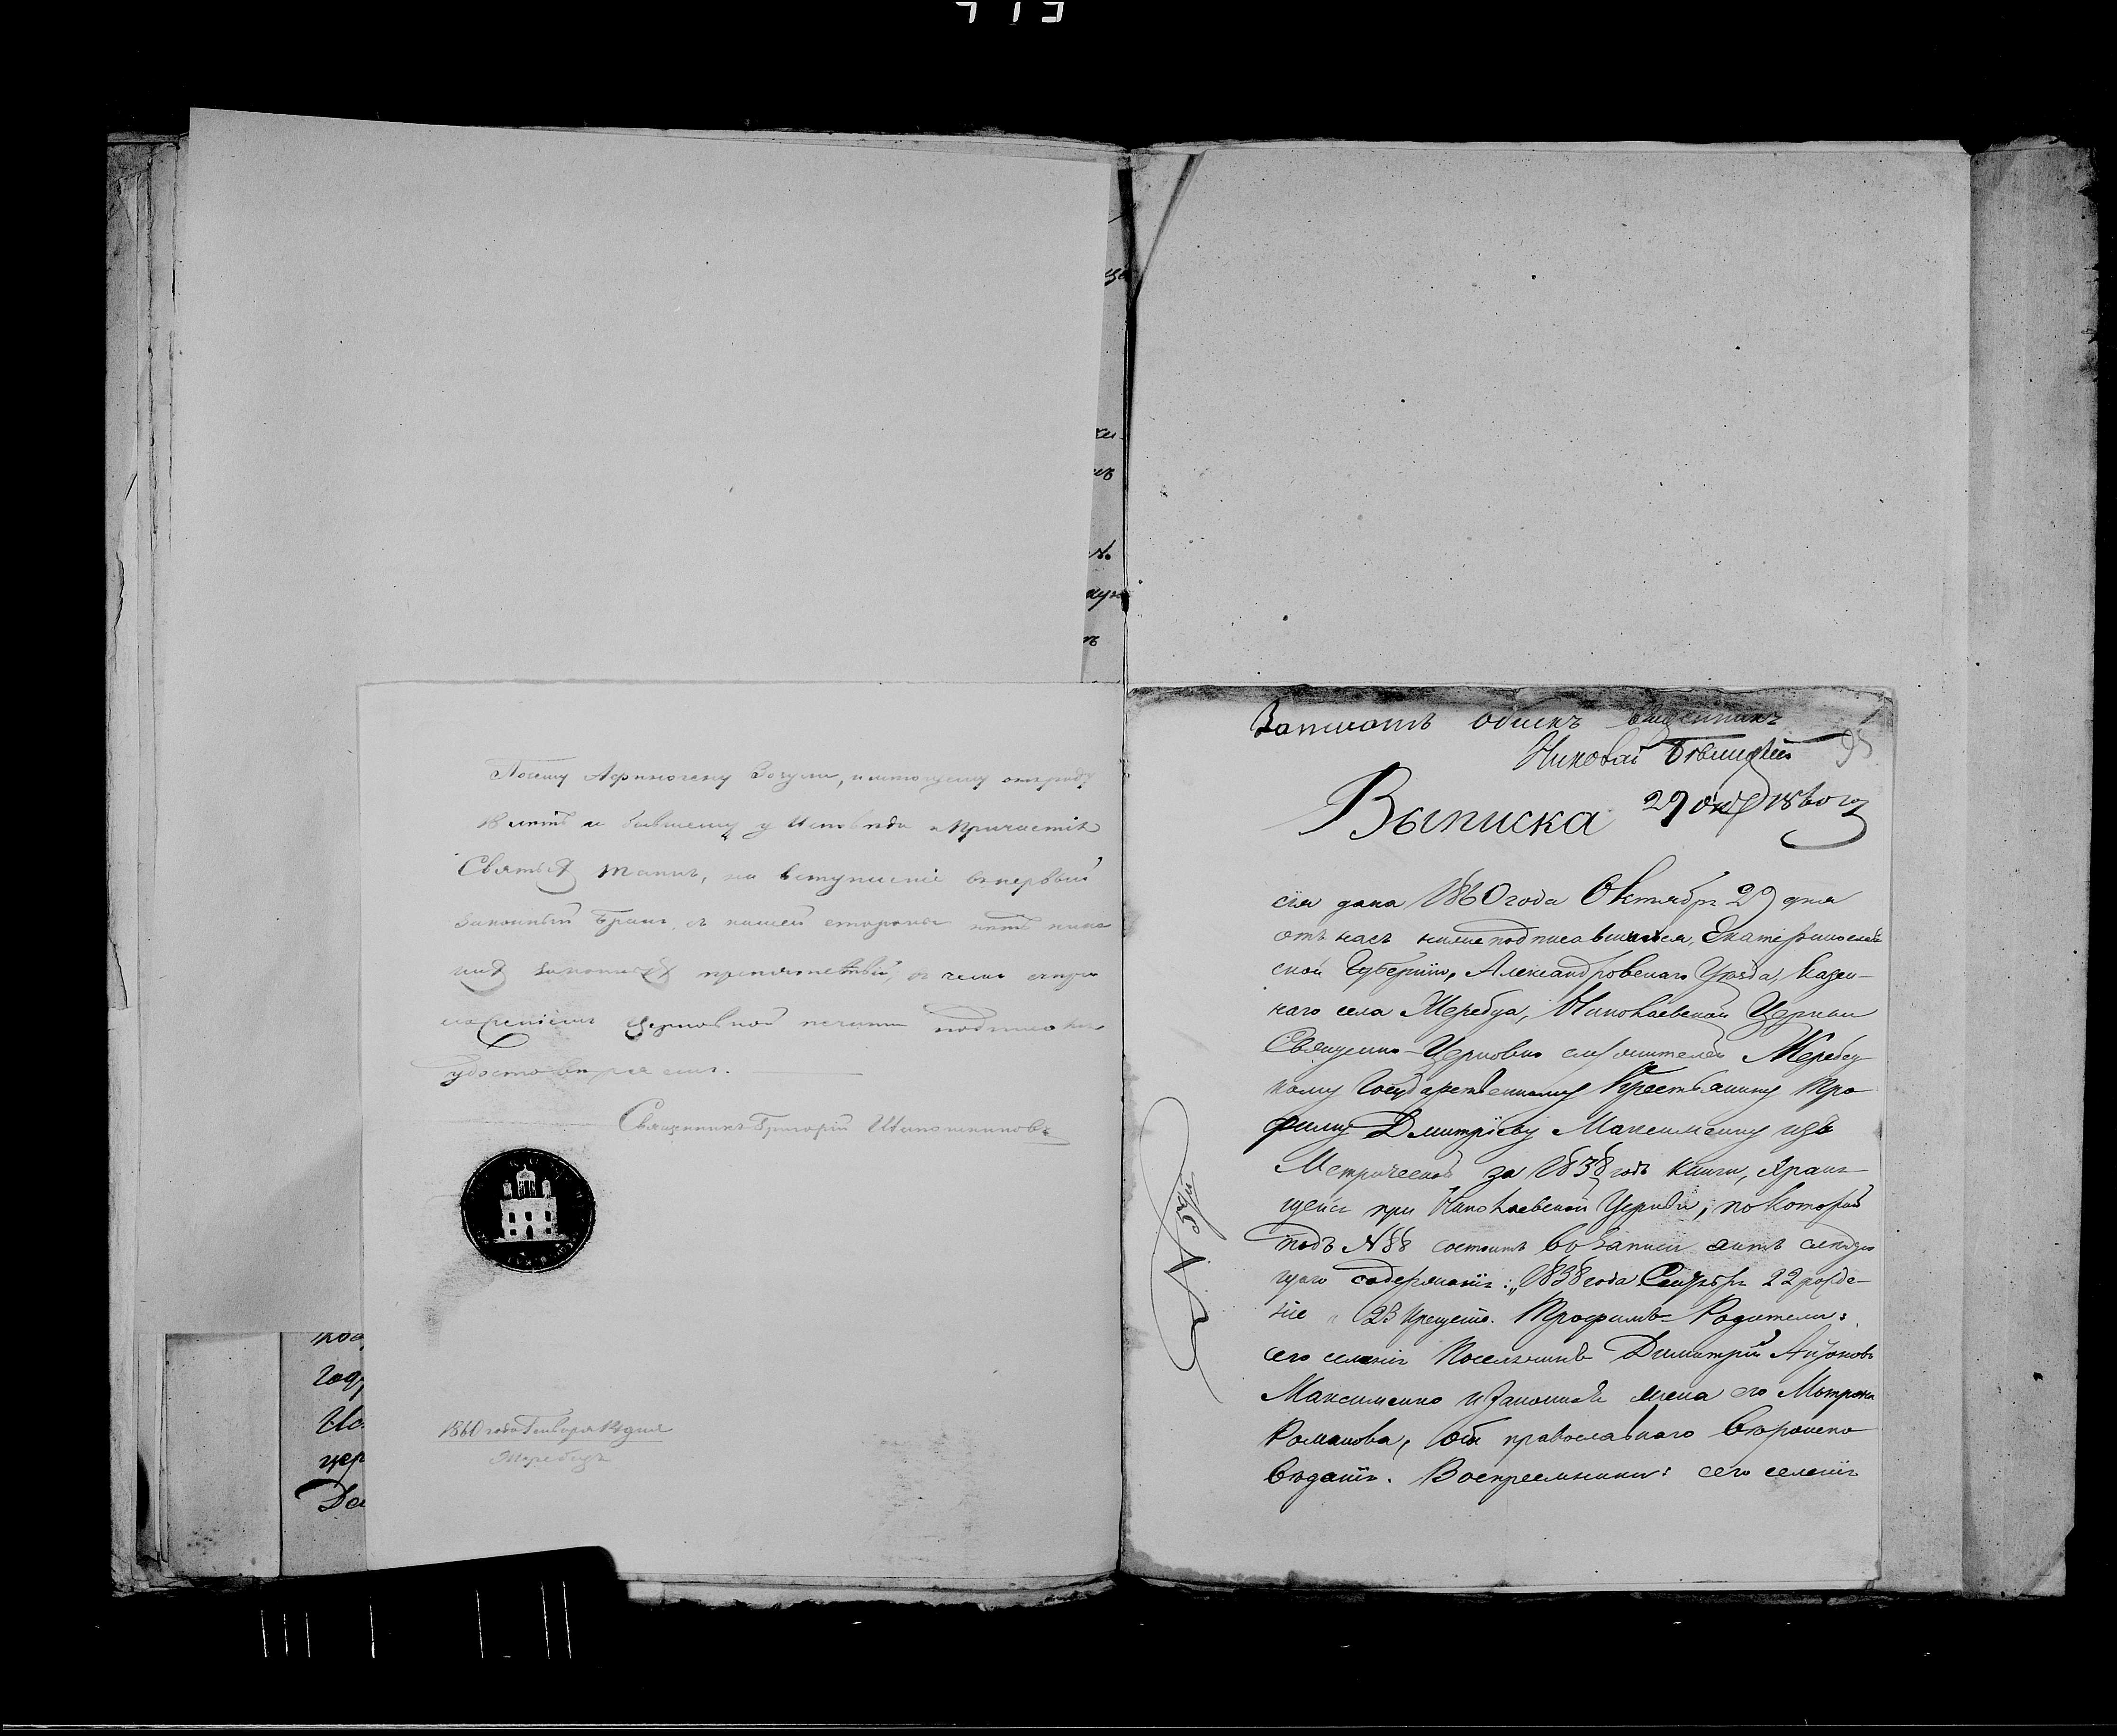 Посему Афиногену Зозули, имеющему отъ роду
18 летъ и бывшему у Исповеди и Причастія
Святыхъ таинъ, на вступленіе въ первый
законный бракъ, съ нашей стороны нетъ ника
кихъ законныхъ препятствій, въ чемъ съ при
ложеніемъ церковной печати подписомъ
удостоверяемъ.
Священникъ Григорій
1860 года Генваря 14 дня
Жеребецъ
Записать обыскъ Священникъ
Николай
95
Выписка 29 окт 1860 го
сія дана 1860 года Октября 29 дня
отъ насъ нижеподписавшихся, Екатеринослав
ской Губерніи, Александровскаго Уезда, Казен-
наго села Жеребца, Николаевской Церкви
Священно-Церковно служителей Жеребец
кому Государственному Крестьянину Тро
фиму Дмитріеву Максименку изъ
Метрической за 1838 годъ книги, храня-
щейся при Николаевской Церкви, по которой
подъ № 88 состоитъ въ записи актъ следую
щаго содержанія: „1838 года Сентября 22 рожде-
ніе 23 крещеніе. Трофимъ - Родители:
сего селенія Поселянинъ Димитрій
Максименко и законная жена его Матрона
Романова, оба православнаго вероиспо
веданія. Воспріемники: сего селенія